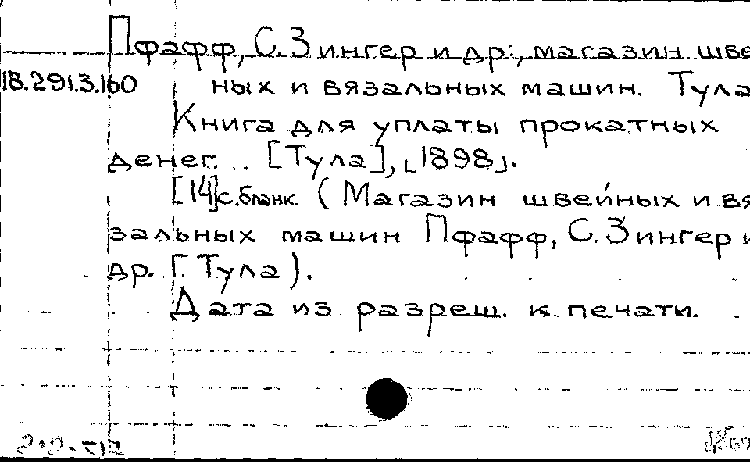 Пфафф, С. Зингер и др., магазин шве
18.291.3.160 ных и вязальных машин. Тула
Книга для уплаты прокатных
денег... [Тула], ⌞1898⌟.
[14]с. бланк. (Магазин швейных и вя
зальных машин Пфафф, С. Зингер и
др. Г. Тула).
Дата из разреш. к печати.